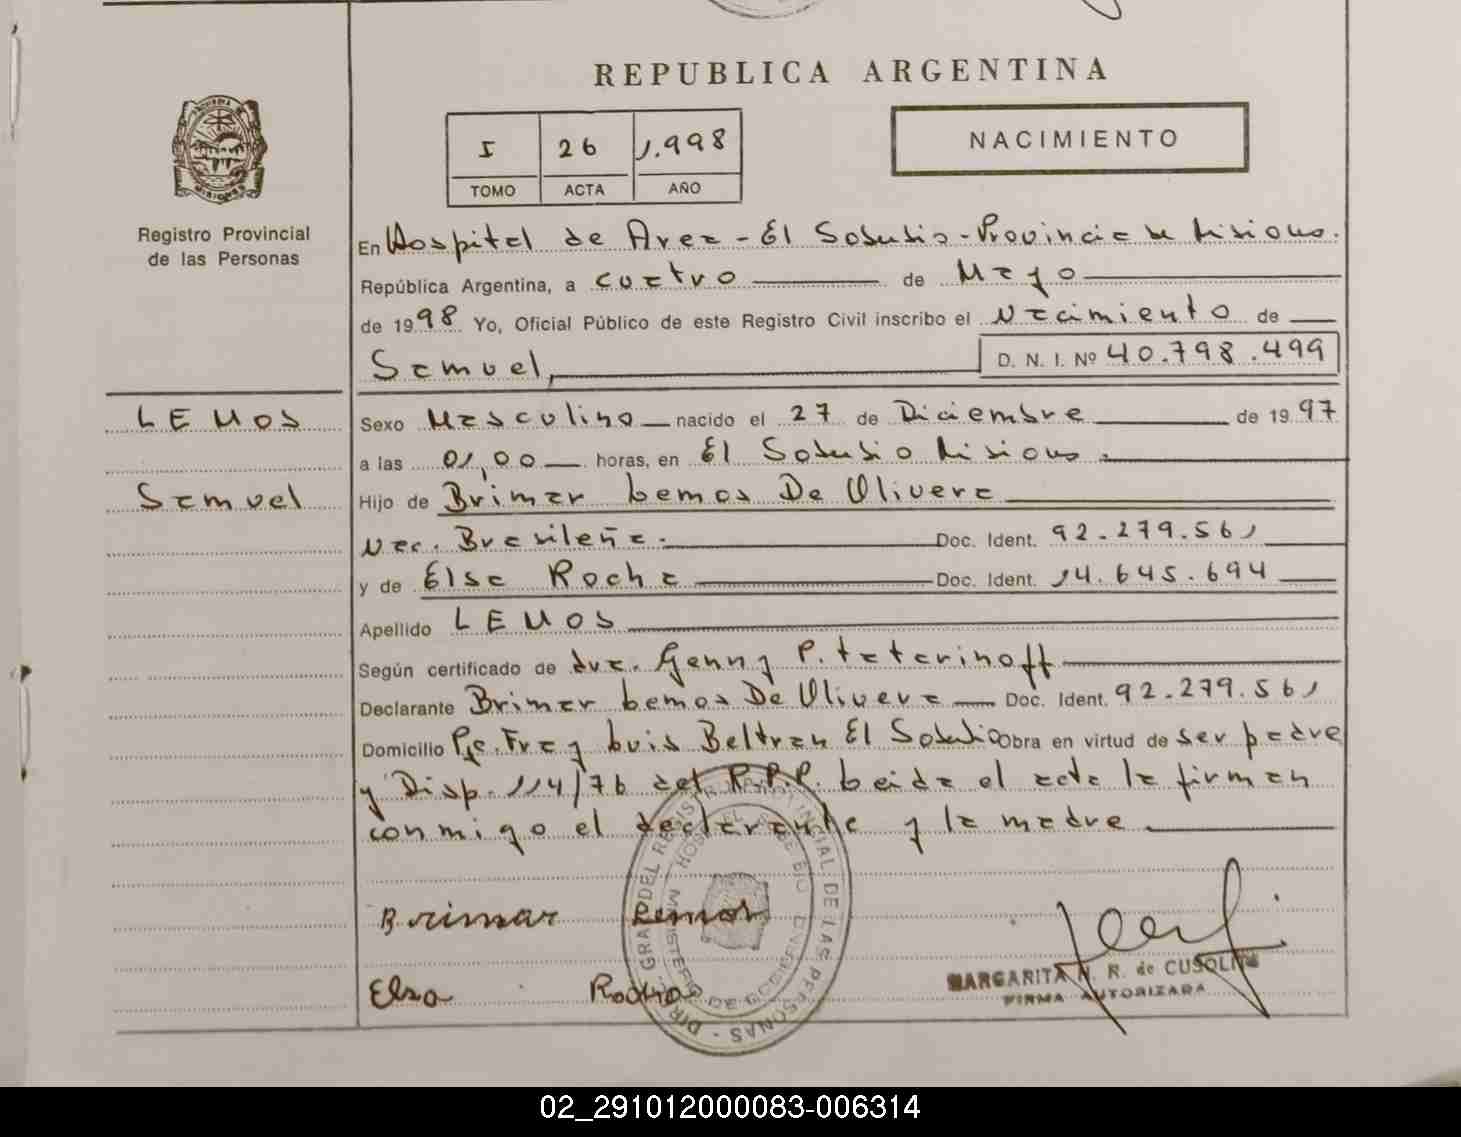 REPUBLICA ARGENTINA
I 26 1.998
TOMO ACTA AÑO
NACIMIENTO
Registro Provincial
de las Personas
En Hospital de Area - El Soberbio - Provincia de Misiones.
República Argentina, a cuatro de Mayo
de 1998 Yo, Oficial Público de este Registro Civil inscribo el Nacimiento de
Samuel, D. N. I. Nº 40.798.499
LEMOS
Samuel
Sexo Masculino nacido el 27 de Diciembre de 1997
a las 01,00 horas, en El Soberbio Misiones.
Hijo de Brimar Lemos De Olivera
Nac. Brasileña. Doc. Ident. 92.279.561
y de Elsa Rocha Doc. Ident. 14.645.694
Apellido LEMOS
Según certificado de dra. Genny P. Tatarinoff
Declarante Brimar Lemos De Olivera Doc. Ident. 92.279.561
Domicilio Pje. Fray Luis Beltran El Soberbio Obra en virtud de ser padre
y Disp. 114/76 del R.P.P. Leida el acta la firman
conmigo el declarante y la madre
Brimar Lemos
Elsa Rocha
MARGARITA N. R. de CUSOLITO
FIRMA AUTORIZADA
02_291012000083-006314